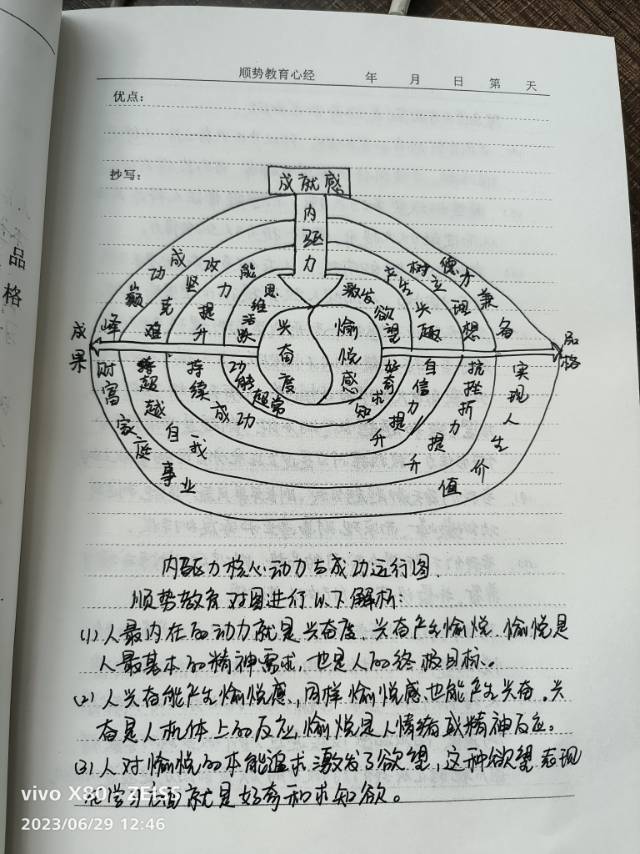 顺势教育心经 年 月 日 第 天
优点：
抄写：
品格
成就感
内驱力
成果
品格
兴奋度
愉悦感
思维活跃
激发欲望
能力提升
产生兴趣
攻坚克难
树立理想
成功巅峰
德才兼备
功能超常
好奇求知
持续成功
自信力提升
超越自我
抗挫折力提升
财富家庭事业
实现人生价值
内驱力核心动力与成功运行图.
顺势教育对图进行以下解析：
(1) 人最内在的动力就是兴奋度、兴奋产生愉悦、愉悦是
人最基本的精神需求，也是人的终极目标。
(2) 人兴奋能产生愉悦感、同样愉悦感也能产生兴奋。兴
奋是人机体上的反应，愉悦是人情绪或精神反应。
(3) 人对愉悦的本能追求激发了欲望，这种欲望表现
学习 就是好奇和求知欲。
vivo X80 | ZEISS
2023/06/29 12:46